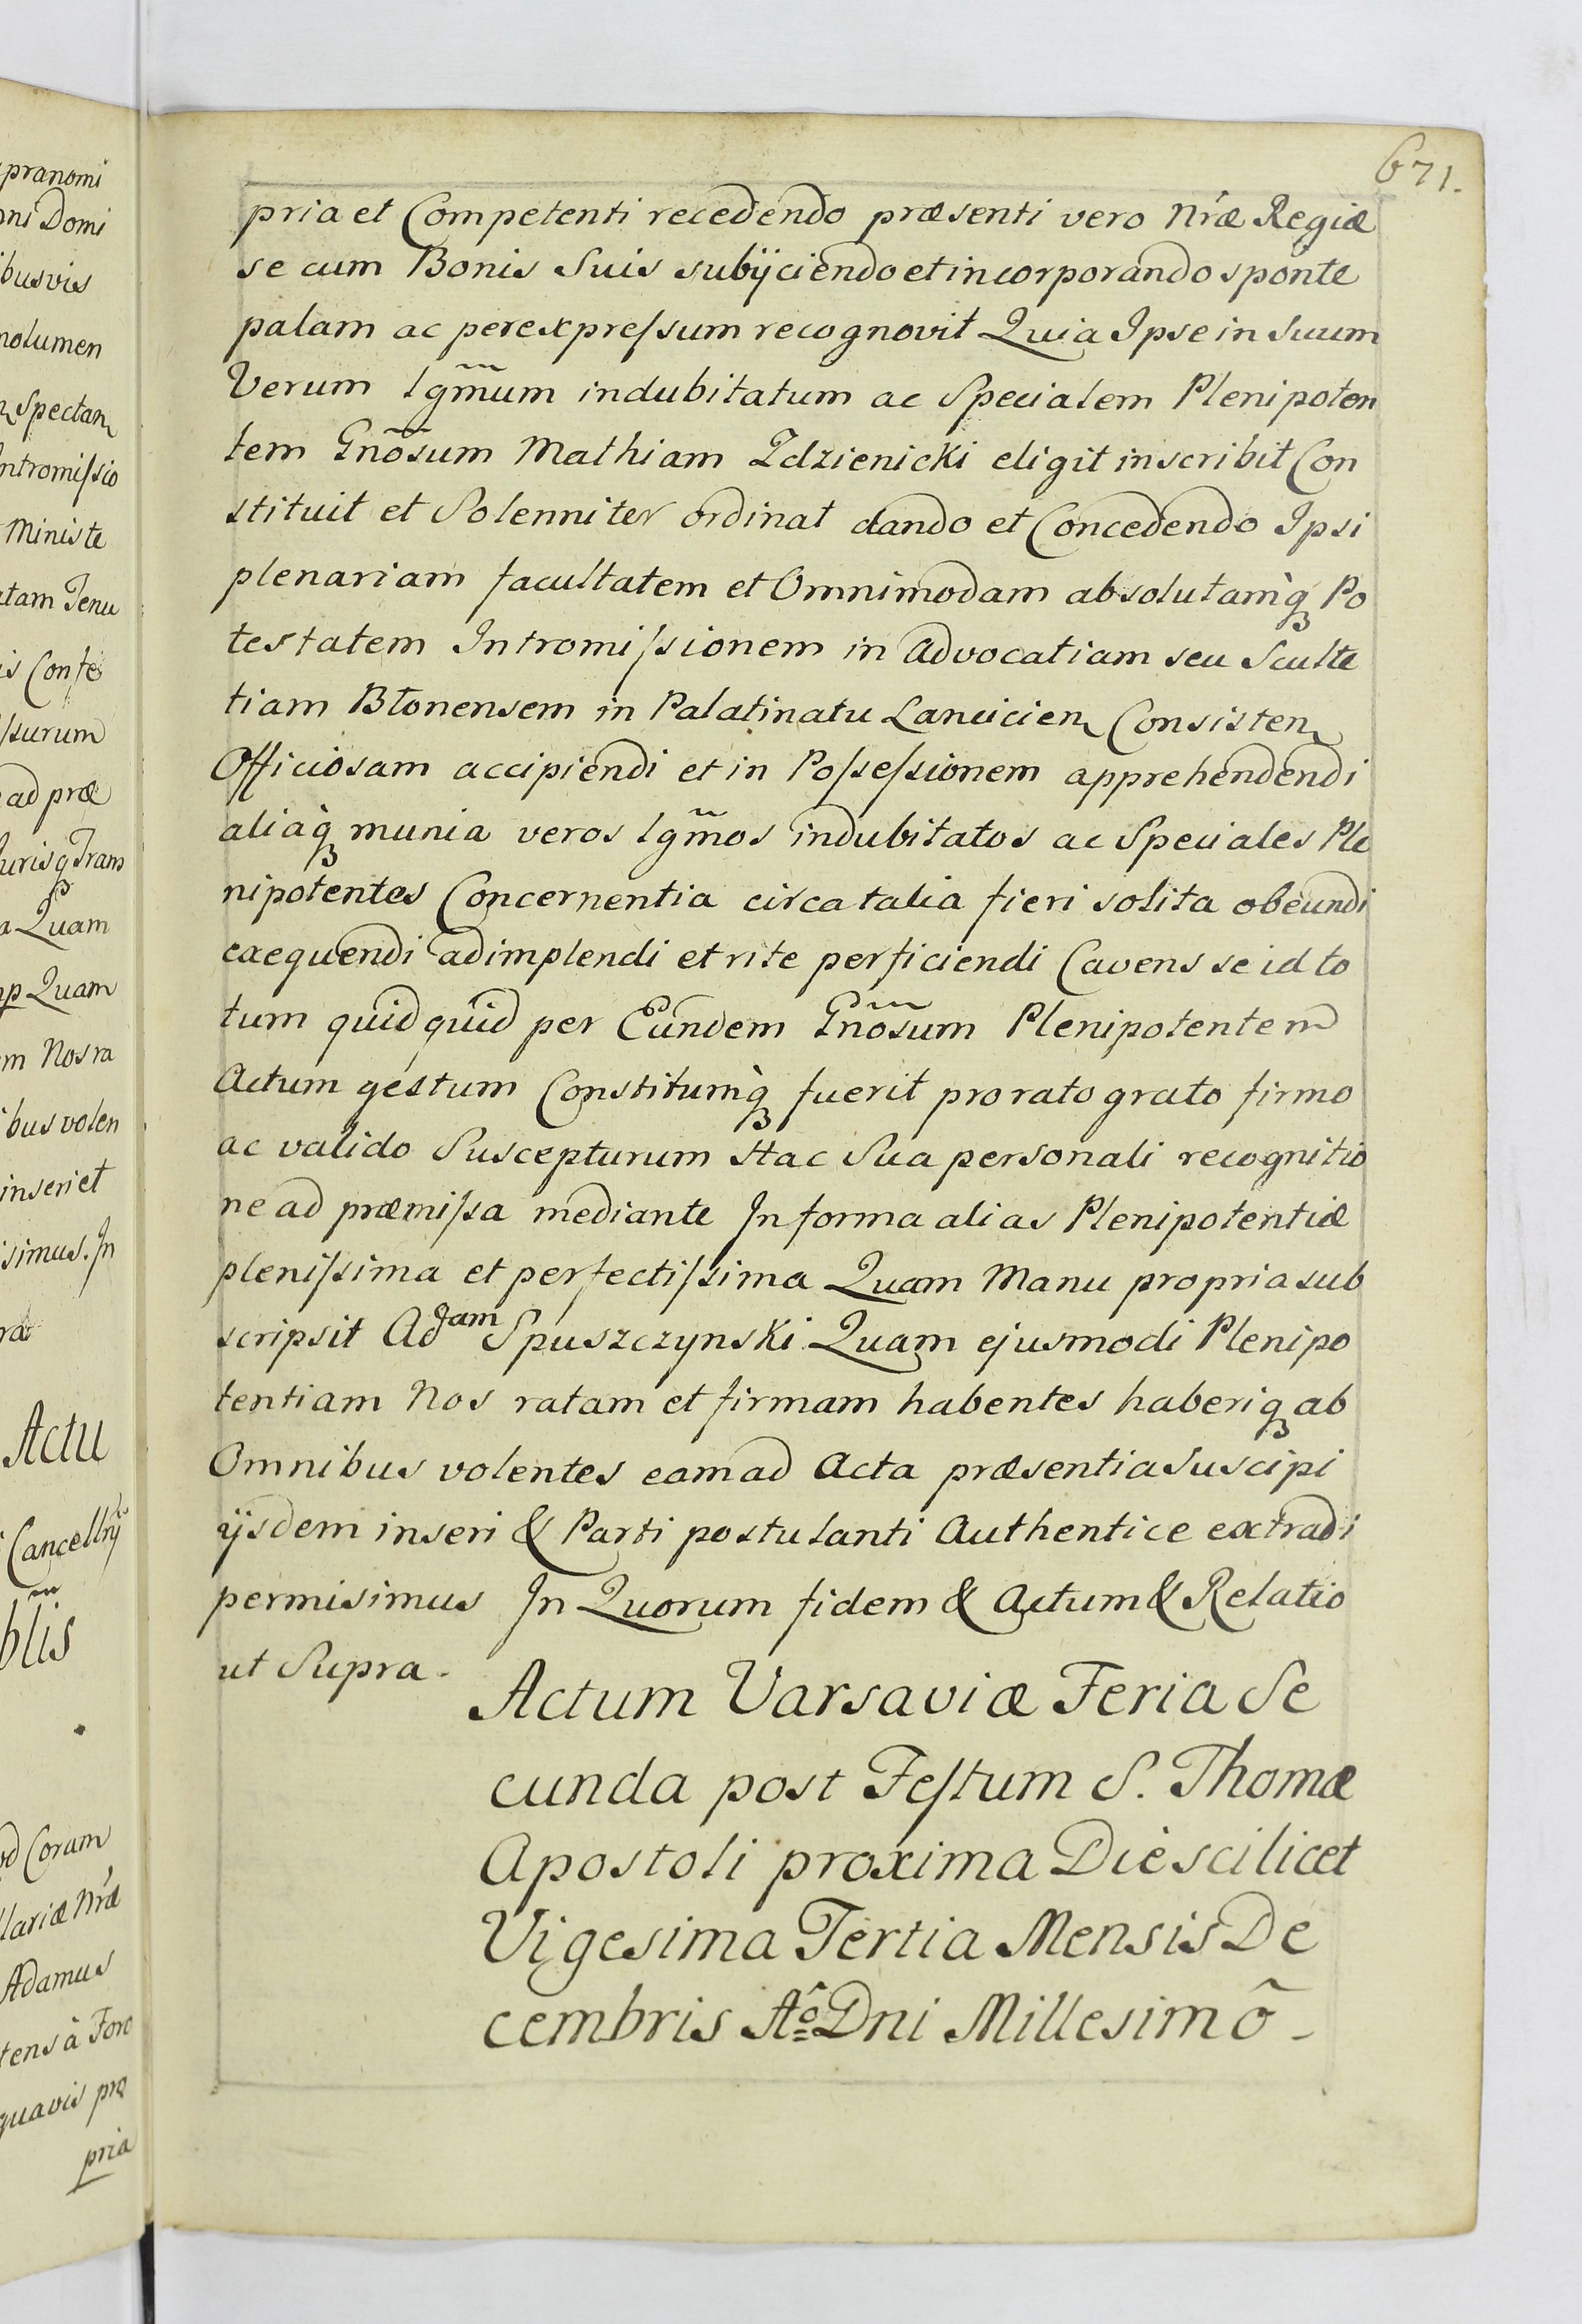 pranomi
ni Domi
ibusvis
nolumen
Spectan
Intromiſsio
Ministe
atam Tenu
is Confe
ſsurum
ad præ
Jurisq Trans
a Quam
Quam
em Nos ra
ibus volen
inseri et
isimus. In
Actu
Cancellrỹ
blĩs
Coram
llariæ Nræ
Adamus
tens à Foro
quavis pro
pria
671.
pria et Competenti recedendo præsenti vero Nræ Regiæ
se cum Bonis Suis subÿciendo et incorporando sponte
palam ac perexpreſsum recognovit Quia Ipse in Suum
Verum lgm̃um indubitatum ac Specialem Plenipoten
tem Gnõsum Mathiam Zdzienicki eligit inscribit Con
stituit et Solenniter ordinat dando et Concedendo Ipsi
plenariam facultatem et Omnimodam absolutamq̀ Po
testatem Intromiſsionem in Advocatiam seu Sculte
tiam Błonensem in Palatinatu Lancicien Consisten
Officiosam accipiendi et in Poſseſsionem apprehendendi
aliaq̀ munia veros lgm̃os indubitatos ac Speciales Ple
nipotentes Concernentia circa talia fieri solita obeundi
exequendi adimplendi et rite perficiendi Cavens se id to
tum quidquid per Eundem Gnõsum Plenipotentem
Actum gestum Constitumq̀ fuerit pro rato grato firmo
ac valido Suscepturum Hac Sua personali recognitio
ne ad præmiſsa mediante In forma alias Plenipotentiæ
pleniſsima et perfectiſsima Quam Manu propria sub
scripsit Adam Spuszczynski Quam ejusmodi Plenipo
tentiam Nos ratam et firmam habentes haberiq ab
Omnibus volentes eam ad Acta præsentia Suscipi
ÿsdem inseri & Parti postulanti Authentice extradi
permisimus In Quorum fidem & Actum & Relatio
ut Supra.
Actum Varsaviæ Feria Se
cunda post Feſtum S. Thomæ
Apostoli proxima Die scilicet
Vigesima Tertia Mensis De
cembris Aº Dni Millesimõ